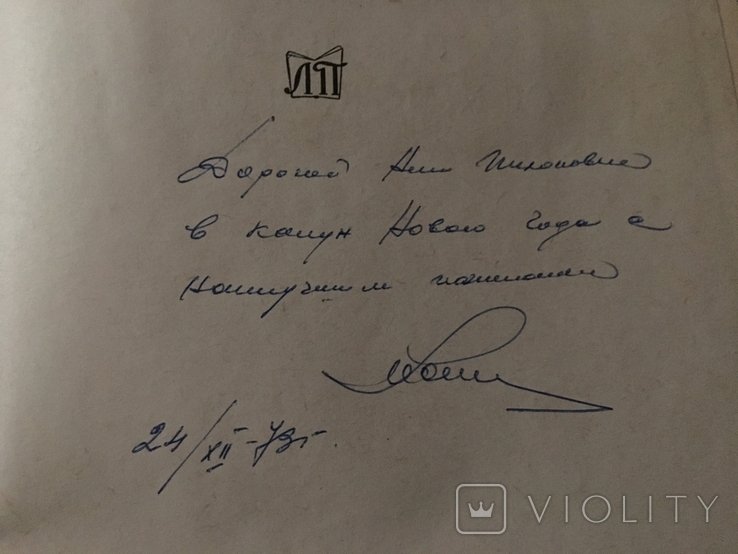 ЛП
Дорогой Нине
в канун Нового года с
Наилучшими пожеланиями
24/XII-73г.
VIOLITY